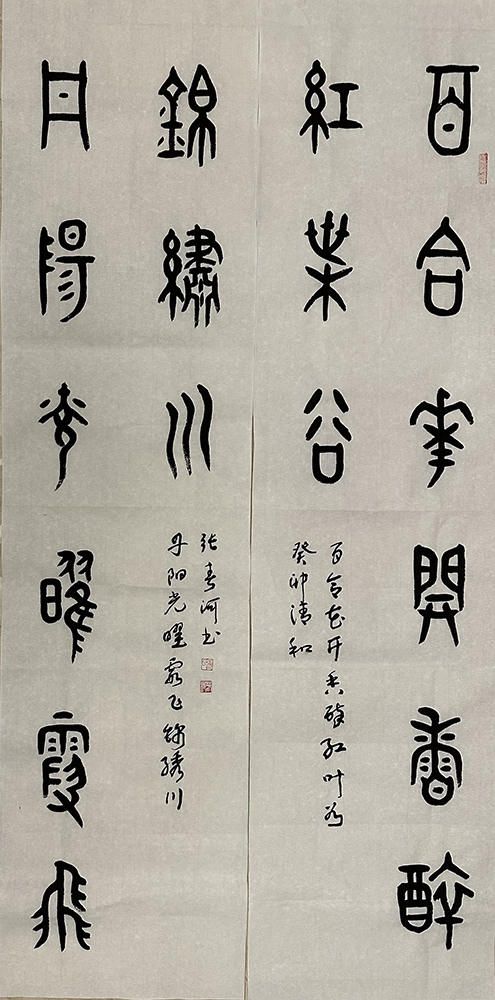 百合華開香醉
紅葉谷
百合花开香醉红叶谷
癸卯清和
丹陽光曜霞飛
錦繡川
丹阳光曜霞飞锦绣川
张春河书